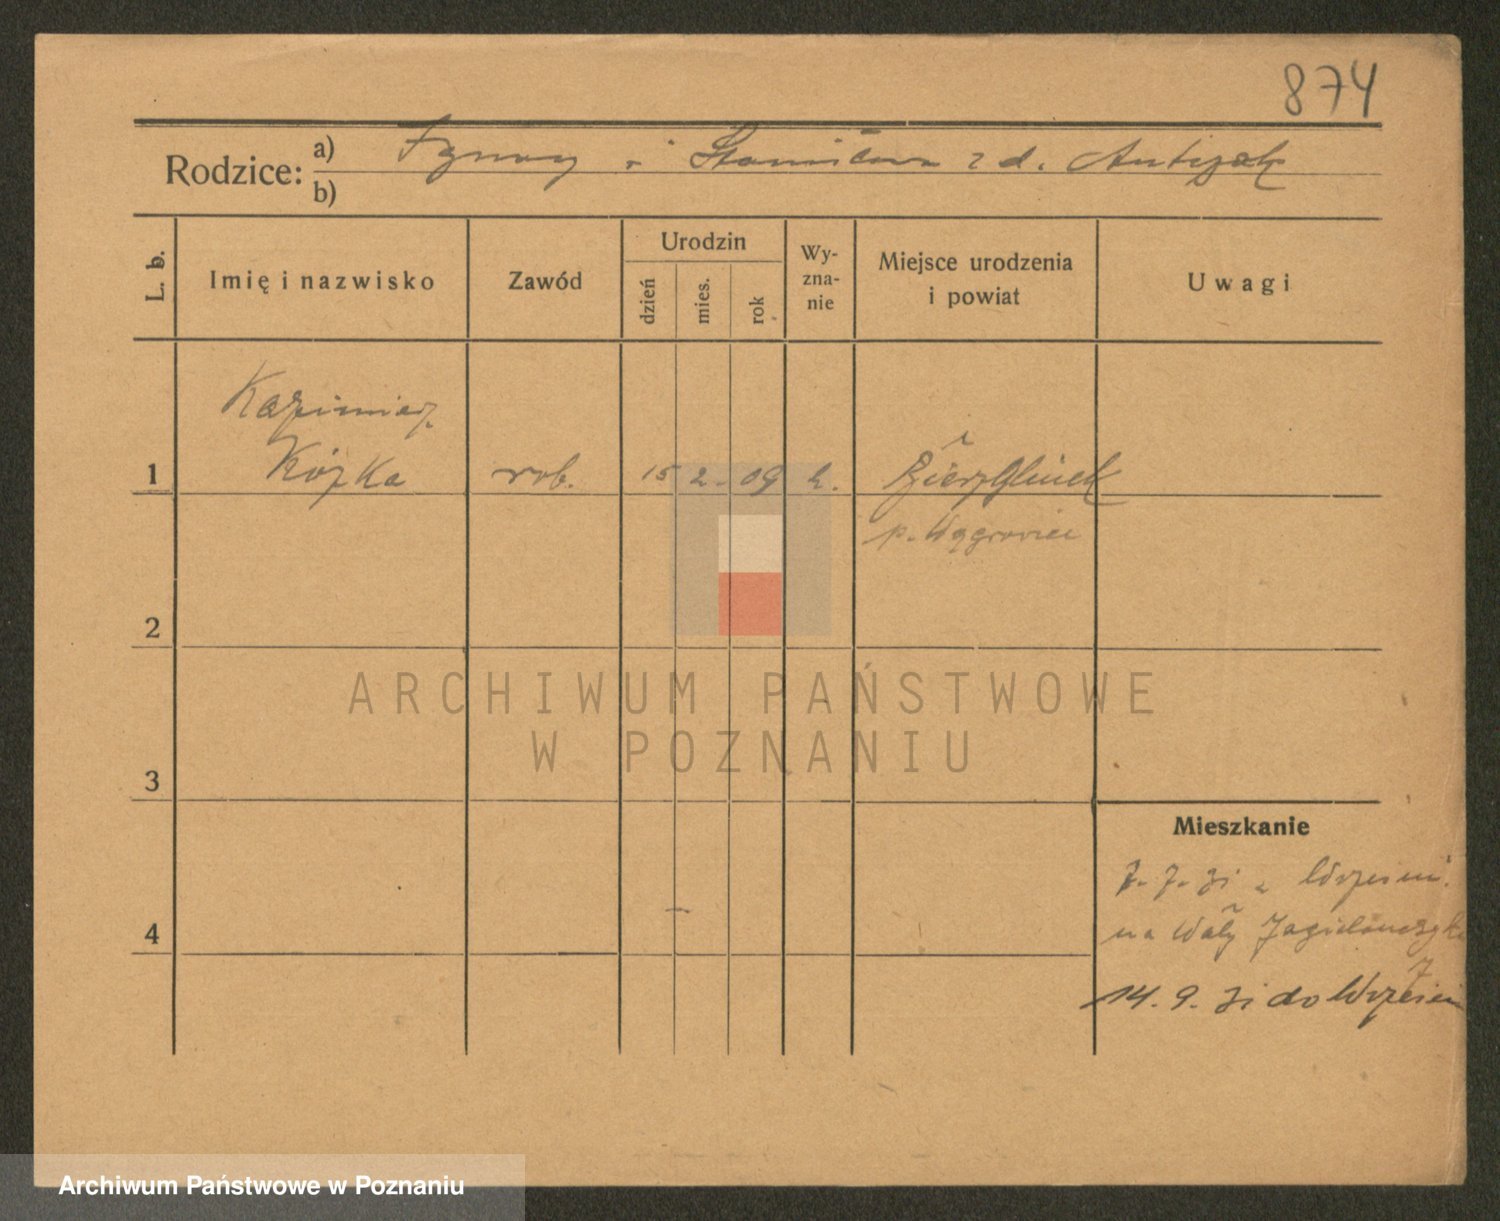 874
Rodzice: a) Ignacy i Stanisława z d. Antczak
b)
L. b.
Imię i nazwisko
Zawód
Urodzin
dzień
mies.
rok
Wy-
zna-
nie
Miejsce urodzenia
i powiat
Uwagi
Kazimierz
1 Kózka rob. 15 2. 09 k.
p. Wągrowiec
2
ARCHIWUM PAŃSTWOWE
W POZNANIU
3
Mieszkanie
7. 7. 31 z Wrześni.
4 na Wały
14. 9. 31 do Wrześni
Archiwum Państwowe w Poznaniu